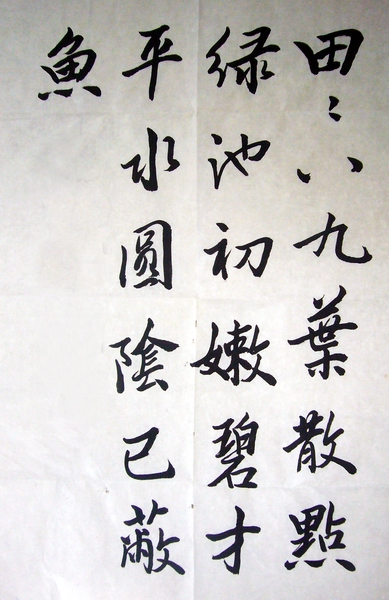 田〻八九葉散點
绿池初嫩碧才
平水圓陰已蔽
魚